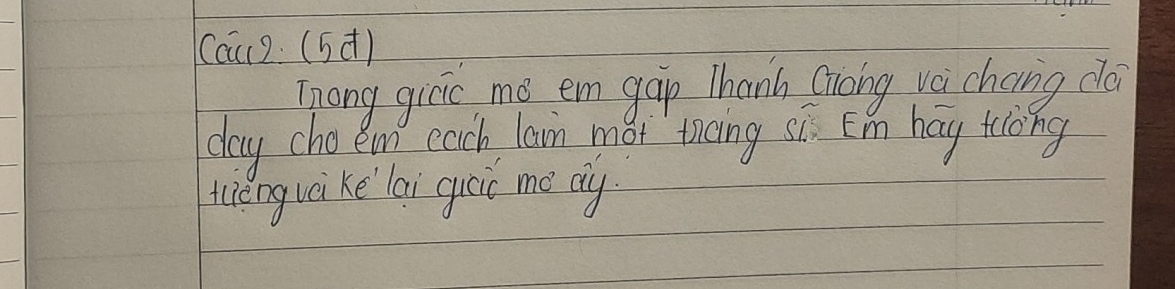 Câu 2. (5đ)
Trong giấc mơ em gặp Thánh Gióng và chàng đã
dạy cho em cách làm một tráng sĩ. Em hãy tưởng
tượng và kể lại giấc mơ ấy.